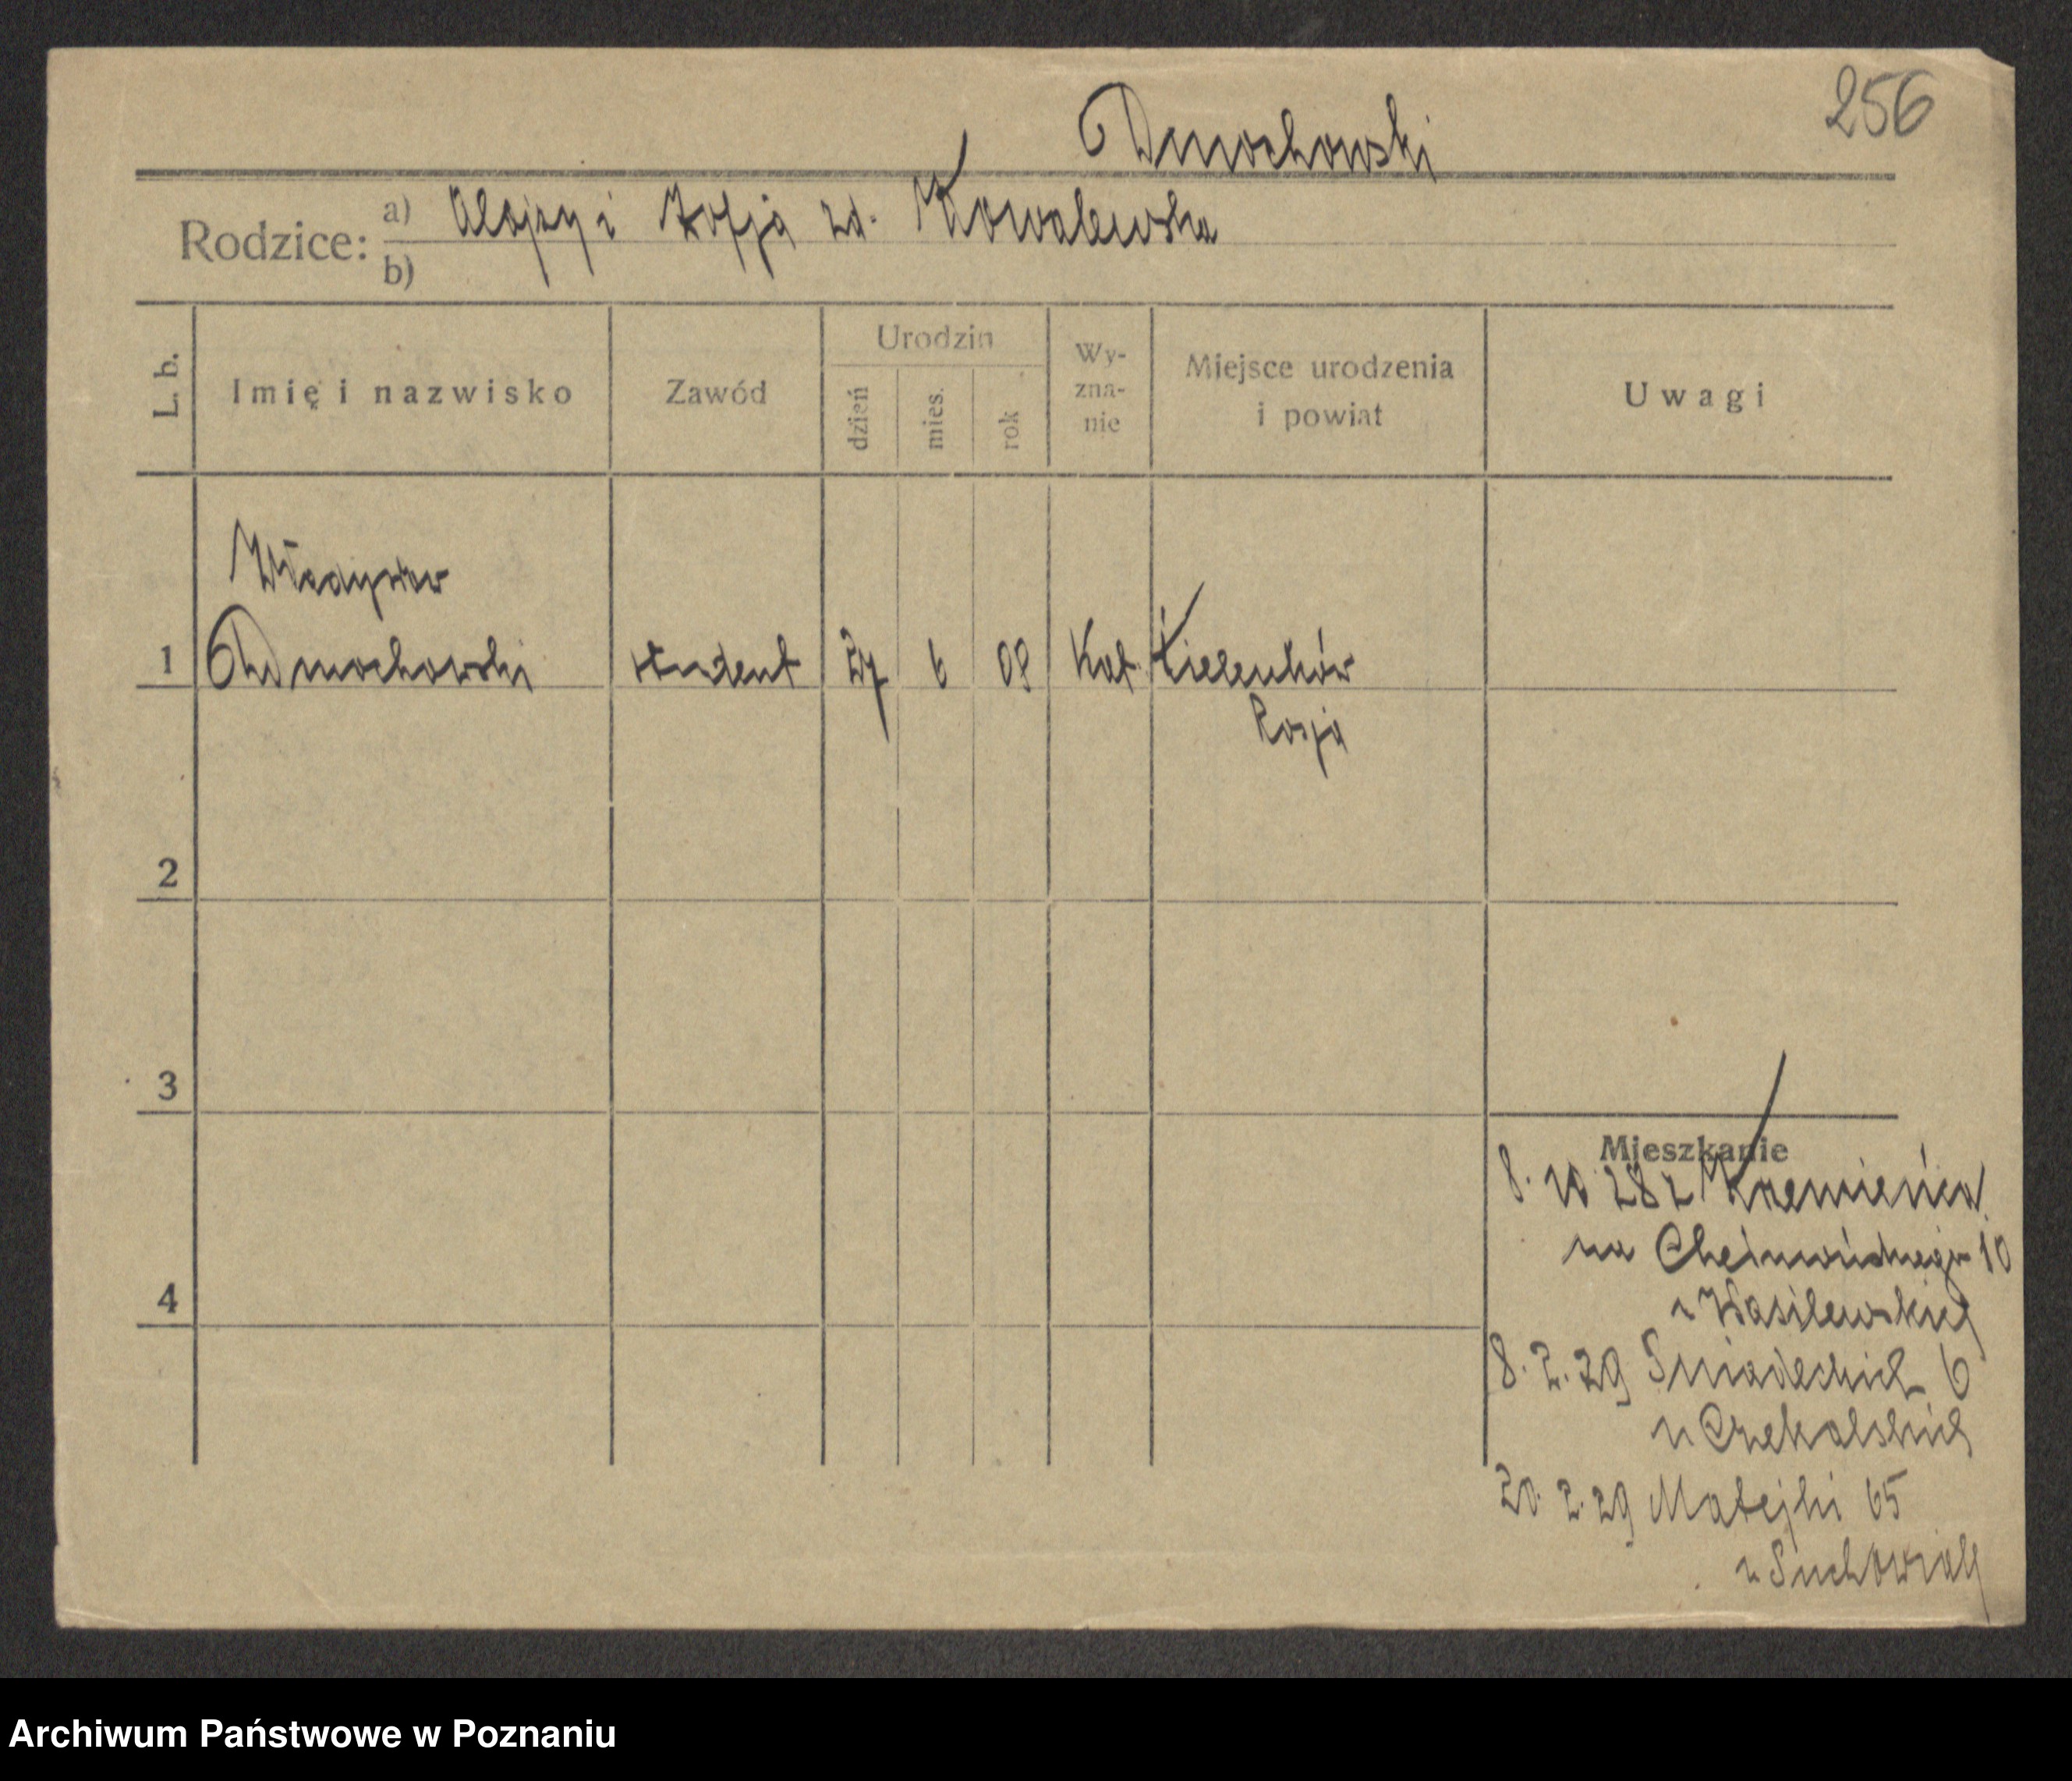 256
Dmochowski
Rodzice: a) Alojzy i Zofja zd. Kowalewska
b)
L. b.
Imię i nazwisko
Zawód
Urodzin
dzień
mies.
rok
Wy-
zna-
nie
Miejsce urodzenia
i powiat
Uwagi
Władysław
1 Dmochowski student 27 6 08 Kat.
Rosja
2
3
4
Mieszkanie
8. 10 28 z Krzemieńca
na 10
u Wasilewskiej
8. 2. 29 Śniadeckich 6
u Czekalskiej
20. 2. 29 Matejki 65
u
Archiwum Państwowe w Poznaniu